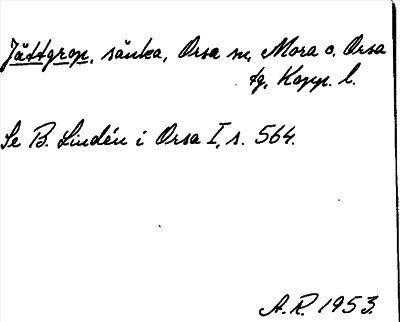 Jättgrop, sänka, Orsa sn, Mora o. Orsa
tg, Kopp. l.
Se B. Lindén i Orsa I, s. 564.
A.R. 1953.